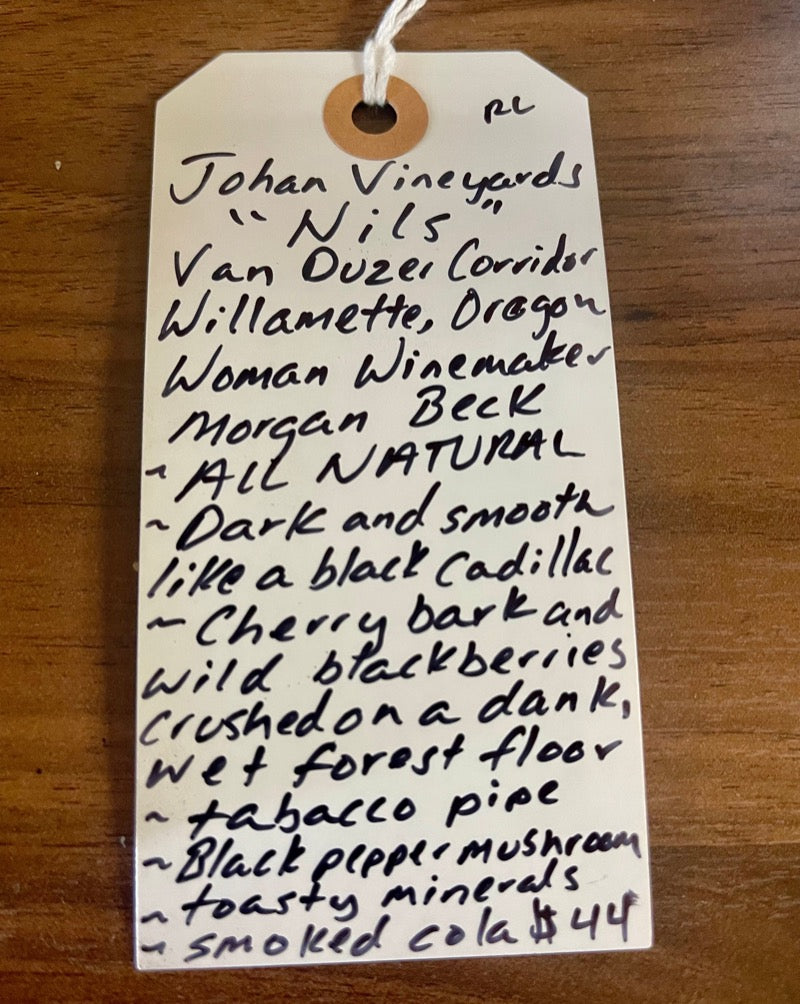 RL
Johan Vineyards
"Nils"
Van Duzer Corridor
Willamette, Oregon
Woman Winemaker
Morgan Beck
~ ALL NATURAL
~ Dark and smooth
like a black Cadillac
~ Cherry bark and
wild blackberries
crushed on a dank,
wet forest floor
~ tabacco pipe
~ Black pepper mushroom
~ toasty minerals
~ smoked cola $44